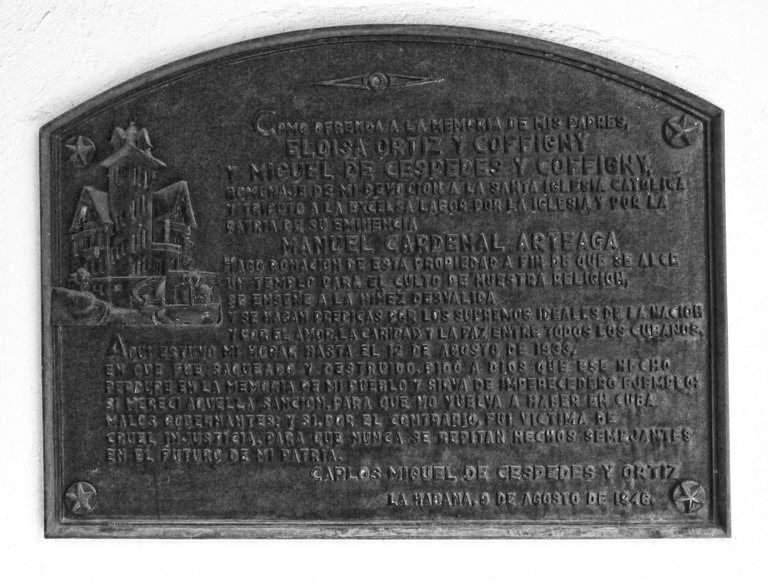 COMO OFRENDA A LA MEMORIA DE MIS PADRES,
ELOISA ORTIZ Y COFFIGNY
Y MIGUEL DE CESPEDES Y COFFIGNY,
HOMENAJE DE MI DEVOCION A LA SANTA IGLESIA CATOLICA
Y TRIBUTO A LA EXCELSA LABOR POR LA IGLESIA Y POR LA
PATRIA DE SU EMINENCIA
MANUEL CARDENAL ARTEAGA
HAGO DONACION DE ESTA PROPIEDAD A FIN DE QUE SE ALCE
UN TEMPLO PARA EL CULTO DE NUESTRA RELIGION,
SE ENSEÑE A LA NIÑEZ DESVALIDA
Y SE HAGAN PREDICAS POR LOS SUPREMOS IDEALES DE LA NACION
Y POR EL AMOR, LA CARIDAD Y LA PAZ ENTRE TODOS LOS CUBANOS.
AQUI ESTUVO MI HOGAR HASTA EL 12 DE AGOSTO DE 1933,
EN QUE FUE SAQUEADO Y DESTRUIDO. PIDO A DIOS QUE ESE HECHO
PERDURE EN LA MEMORIA DE MI PUEBLO Y SIRVA DE IMPERECEDERO EJEMPLO:
SI MERECI AQUELLA SANCION, PARA QUE NO VUELVA A HABER EN CUBA
MALOS GOBERNANTES; Y SI, POR EL CONTRARIO, FUI VICTIMA DE
CRUEL INJUSTICIA, PARA QUE NUNCA SE REPITAN HECHOS SEMEJANTES
EN EL FUTURO DE MI PATRIA.
CARLOS MIGUEL DE CESPEDES Y ORTIZ
LA HABANA, 9 DE AGOSTO DE 1946.